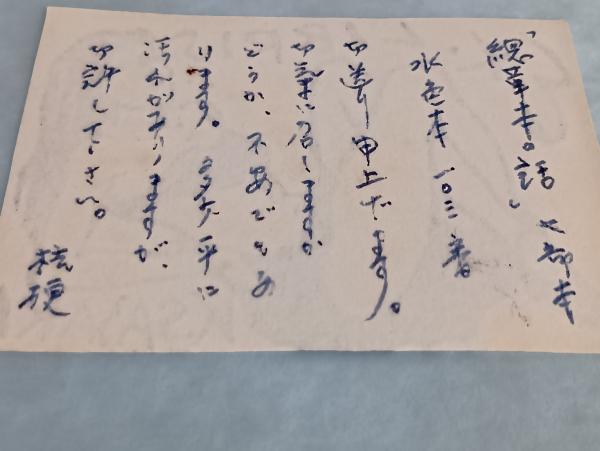 「總革本の話」 七部本
水色本 一〇三番
御送り申上げます。
御気に召しますか
どうか、不安でもあ
ります。 平に
汚れがありますが、
御許し下さい。